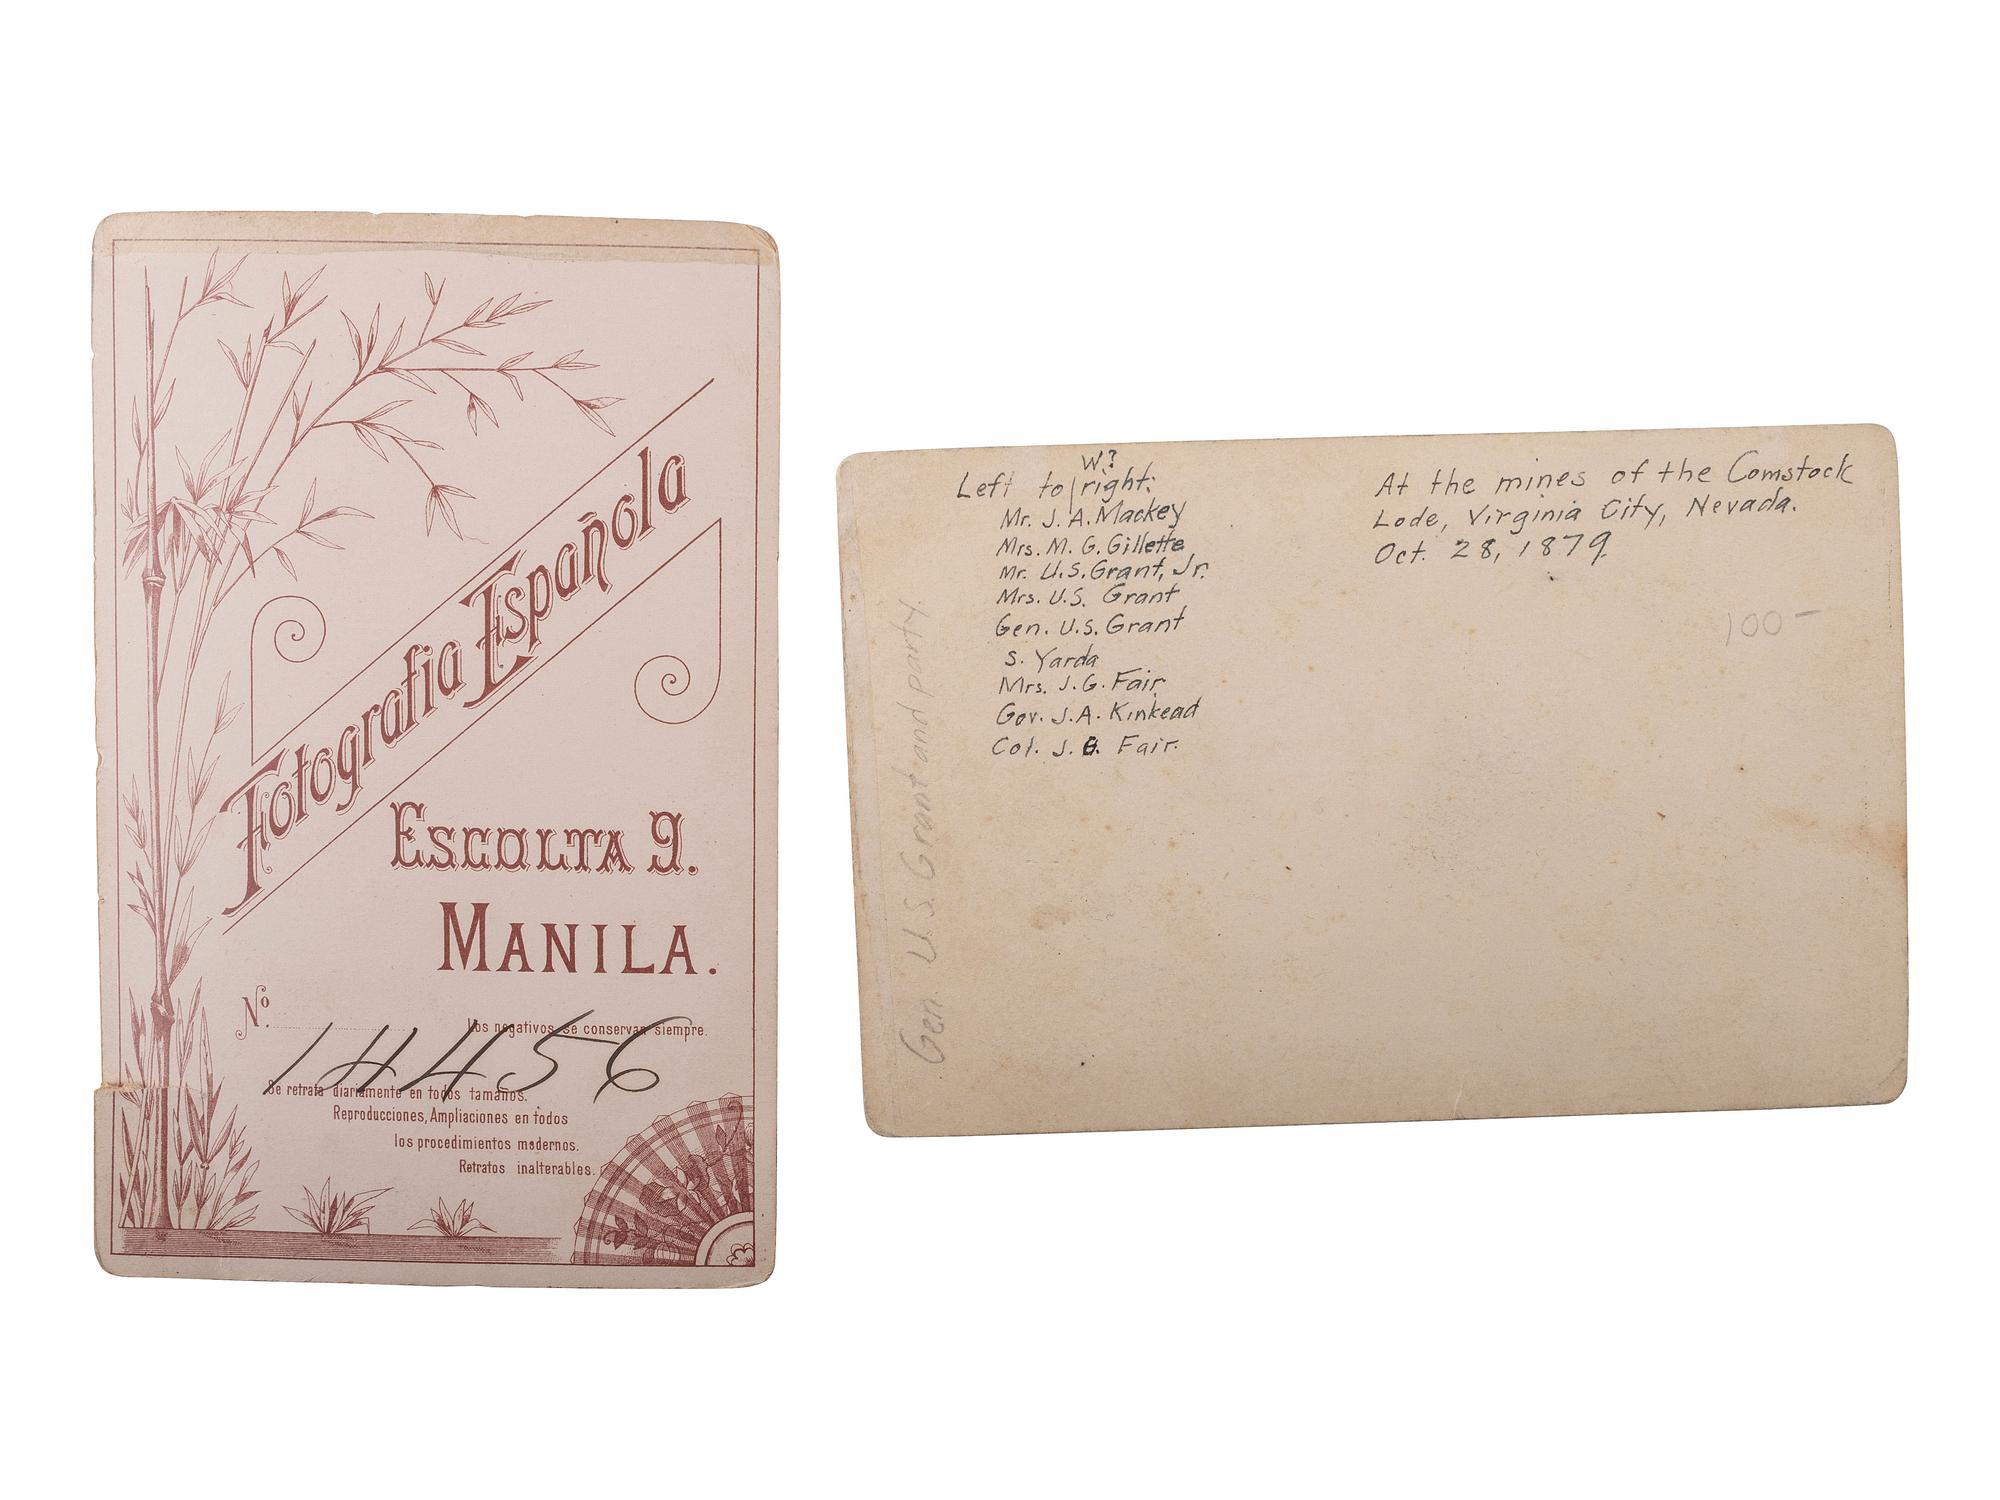 Fotografia Española
ESCOLTA 9.
MANILA.
Nº
Los negativos se conservan siempre.
14456
Se retrata diariamente en todos tamaños.
Reproducciones, Ampliaciones en todos
los procedimientos modernos.
Retratos inalterables.
Gen. U.S. Grant and party.
W?
Left to right:
Mr. J. A. Mackey
Mrs. M. G. Gillette
Mr. U.S. Grant, Jr.
Mrs. U.S. Grant
Gen. U.S. Grant
S. Yarda
Mrs. J. G. Fair
Gov. J. A. Kinkead
Col. J. G. Fair.
At the mines of the Comstock
Lode, Virginia City, Nevada.
Oct. 28, 1879.
100-